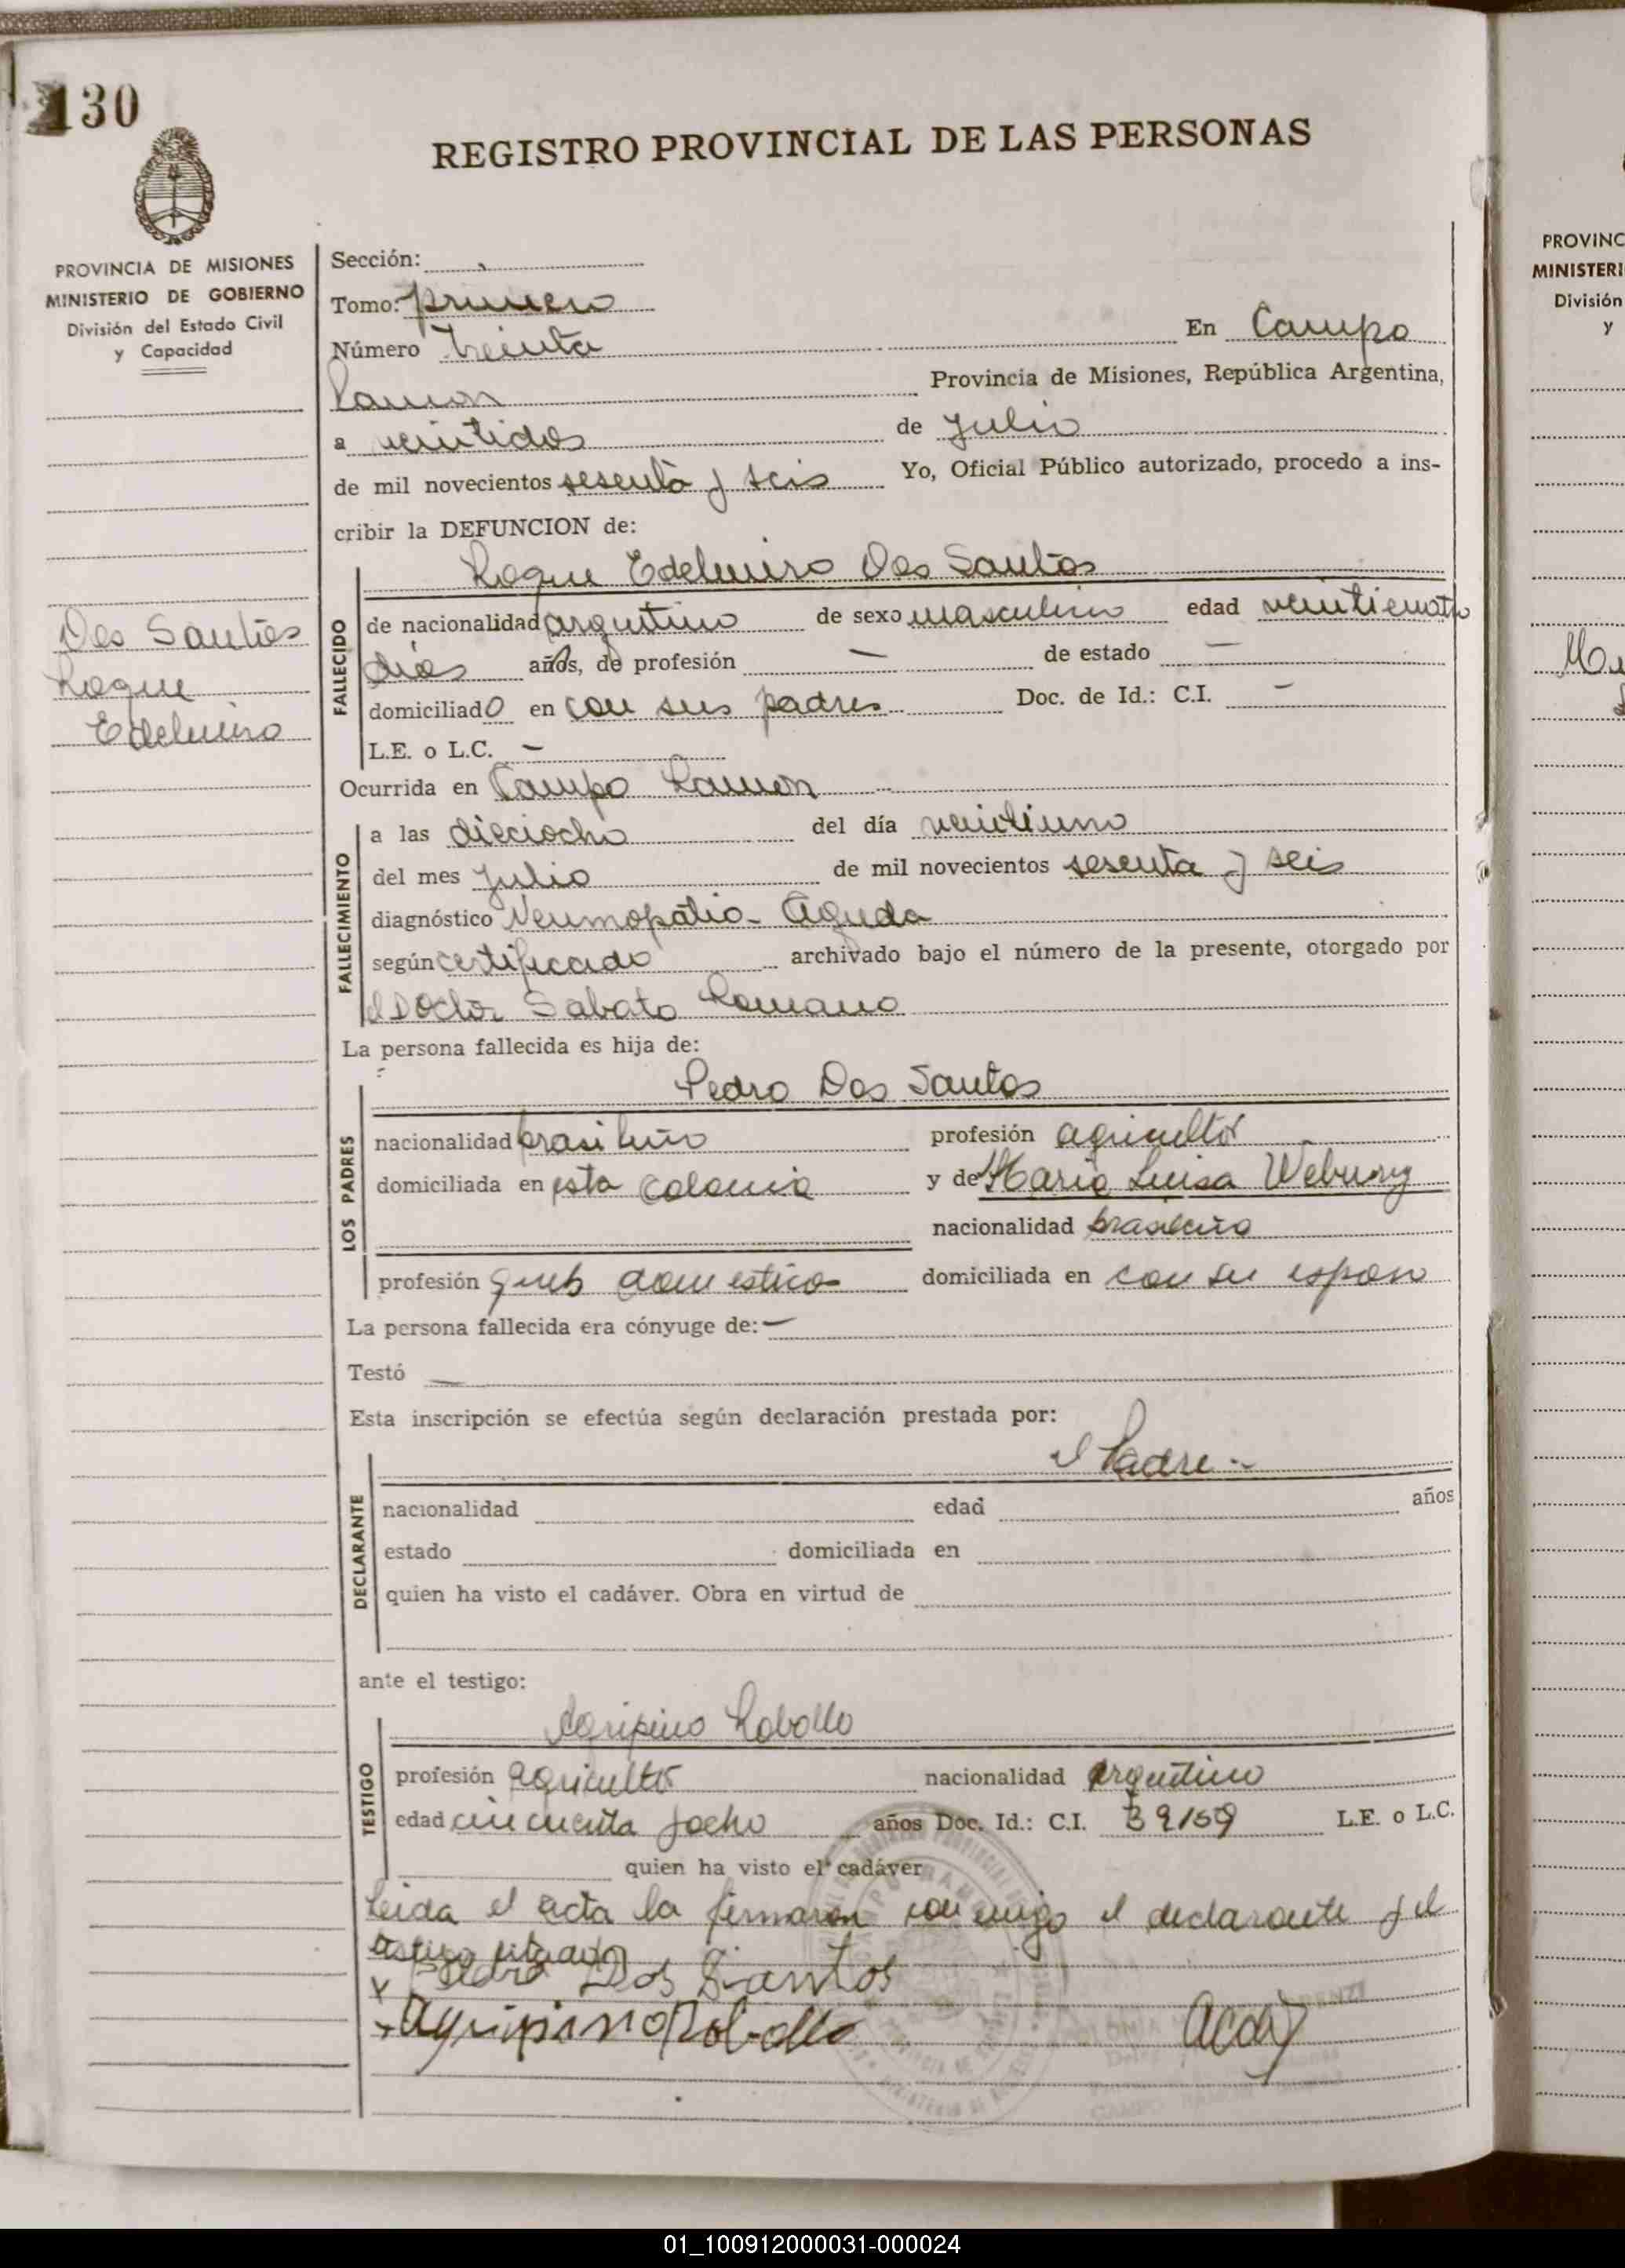 130
REGISTRO PROVINCIAL DE LAS PERSONAS
PROVINCIA DE MISIONES
MINISTERIO DE GOBIERNO
División del Estado Civil
y Capacidad
Dos Santos
Roque
Edelmiro
Sección:
Tomo: primero
Número treinta En Campo
Ramon Provincia de Misiones, República Argentina,
a veintidos de Julio
de mil novecientos sesenta y seis Yo, Oficial Público autorizado, procedo a ins-
cribir la DEFUNCION de:
Roque Edelmiro Dos Santos
FALLECIDO
de nacionalidad argentino de sexo masculino edad veinticuatro
días años, de profesión — de estado —
domiciliado en con sus padres Doc. de Id.: C.I. —
L.E. o L.C. —
Ocurrida en Campo Ramon
FALLECIMIENTO
a las dieciocho del día veintiuno
del mes Julio de mil novecientos sesenta y seis
diagnóstico Neumopatia Aguda
según certificado archivado bajo el número de la presente, otorgado por
el Doctor Sabato Romano
La persona fallecida es hija de:
Pedro Dos Santos
LOS PADRES
nacionalidad brasileño profesión agricultor
domiciliada en esta Colonia y de Maria Luisa
nacionalidad brasileña
profesión domestico domiciliada en con su esposo
La persona fallecida era cónyuge de: —
Testó —
Esta inscripción se efectúa según declaración prestada por:
el Padre
DECLARANTE
nacionalidad edad años
estado domiciliada en
quien ha visto el cadáver. Obra en virtud de
ante el testigo:
Agripino Robollo
TESTIGO
profesión agricultor nacionalidad argentino
edad cincuenta y ocho años Doc. Id.: C.I. 39159 L.E. o L.C.
quien ha visto el cadáver
Leida el acta la firmaron conmigo el declarante y el
testigo citado
x Pedro Dos Santos
x Agripino Robollo
PROVINC
MINISTERI
División
y
01_100912000031-000024